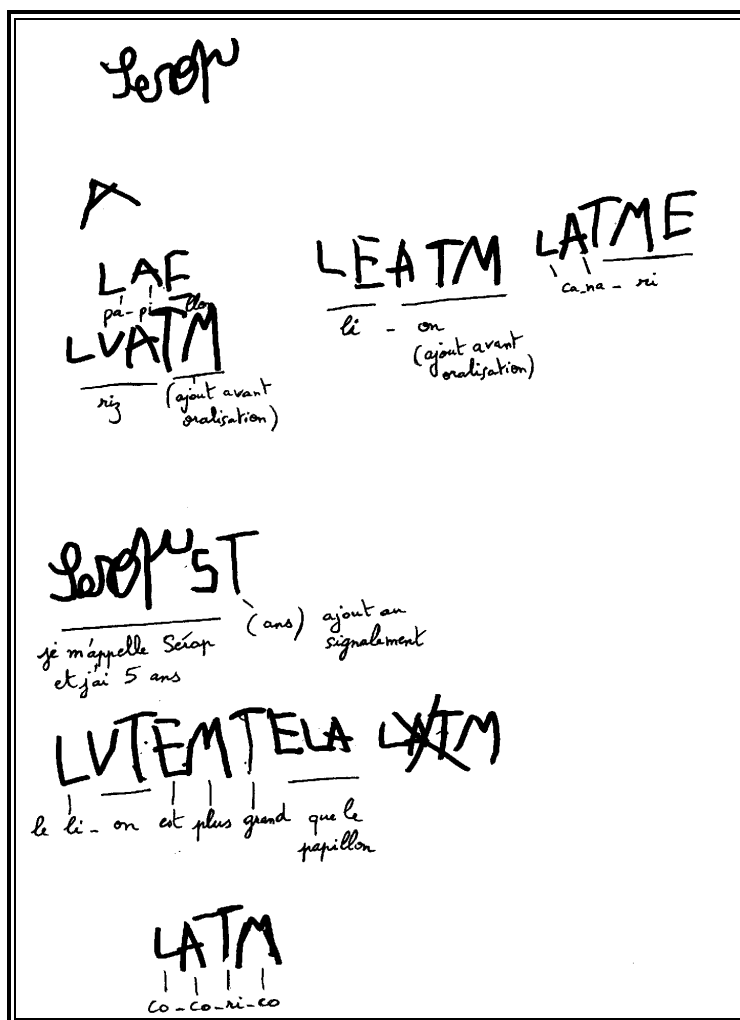 Serap
A
LAE
pa - pi - llon
LVATM
riz (ajout avant
oralisation)
LEATM
li - on
(ajout avant
oralisation)
LATME
ca - na - ri
Serap 5T
je m'appelle Sérap
et j'ai 5 ans
(ans) ajout au
signalement
LVTEMTELA LATM
le li - on est plus grand que le
papillon
LATM
co - co - ri - co